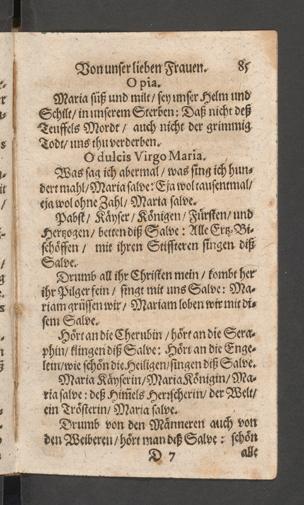 Von unser lieben Frauen. 85
O pia.
Maria süß und milt / sey unser Helm und
Schilt / in unserem Sterben: Daß nicht deß
Teuffels Mordt / auch nicht der grimmig
Todt / uns thu verderben.
O dulcis Virgo Maria.
Was sag ich abermal / was sing ich hun-
dert mahl / Maria salve: Eja wol tausentmal /
eja wol ohne Zahl / Maria salve.
Pabst / Käyser / Königen / Fürsten / und
Hertzogen / betten diß Salve: Alle Ertz-Bi-
schöffen / mit ihren Stifferen singen diß
Salve.
Drumb all ihr Christen mein / kombt her
ihr Pilger fein / singt mit uns Salve: Ma-
riam grüssen wir / Mariam loben wir mit di-
sem Salve.
Hört an die Cherubin / hört an die Sera-
phin / klingen diß Salve: Hört an die Enge-
lein / wie schön die Heiligen / singen diß Salve.
Maria Käyserin / Maria Königin / Ma-
ria salve: deß Him̃els Herscherin / der Welt /
ein Trösterin / Maria salve.
Drumb von den Männeren auch von
den Weiberen / hört man deß Salve: schön
D 7 alle